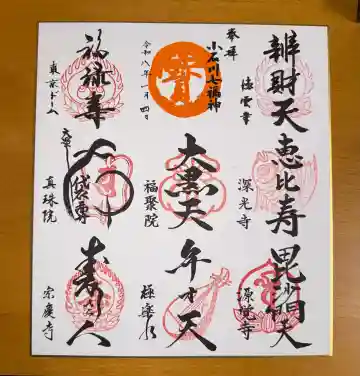 奉拝
小石川七福神
令和八年一月四日
辨財天
徳雲寺
恵比寿
深光寺
毘沙門天
源覚寺
寳
大黒天
福聚院
弁才天
極楽水
福禄寿
東京ドーム
布袋尊
真珠院
寿老人
宗慶寺